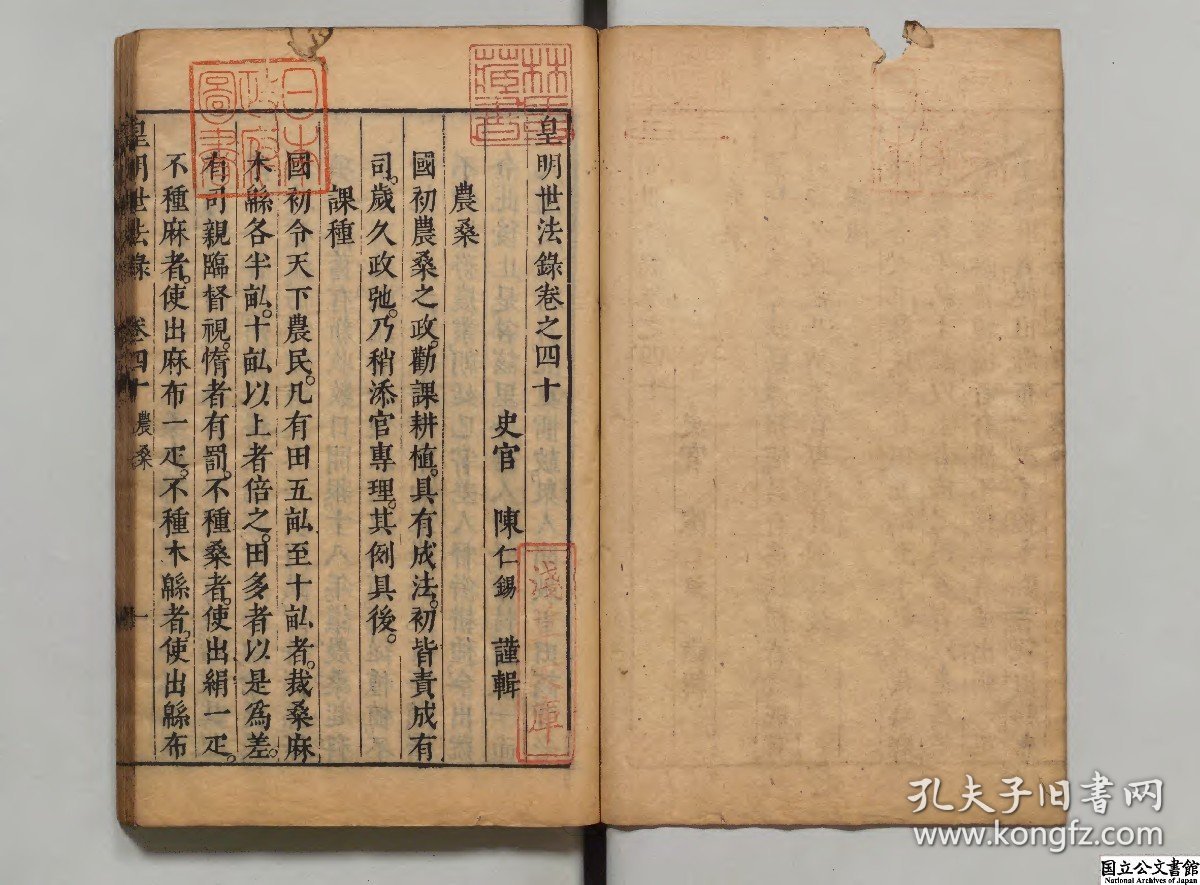 皇明世法錄卷之四十
史官 陳仁錫 謹輯
農桑
國初農桑之政。勸課耕植。具有成法。初皆責成有
司。歲久政弛。乃稍添官專理。其例具後。
課種
國初令天下農民。凡有田五畝至十畝者。栽桑麻
木緜各半畝。十畝以上者倍之。田多者以是爲差。
有司親臨督視。惰者有罰。不種桑者。使出絹一疋。
不種麻者。使出麻布一疋。不種木緜者。使出緜布
皇明世法錄 卷四十 農桑 一
林氏藏書
日本政府圖書
淺草文庫
孔夫子旧书网
www.kongfz.com
国立公文書館
National Archives of Japan